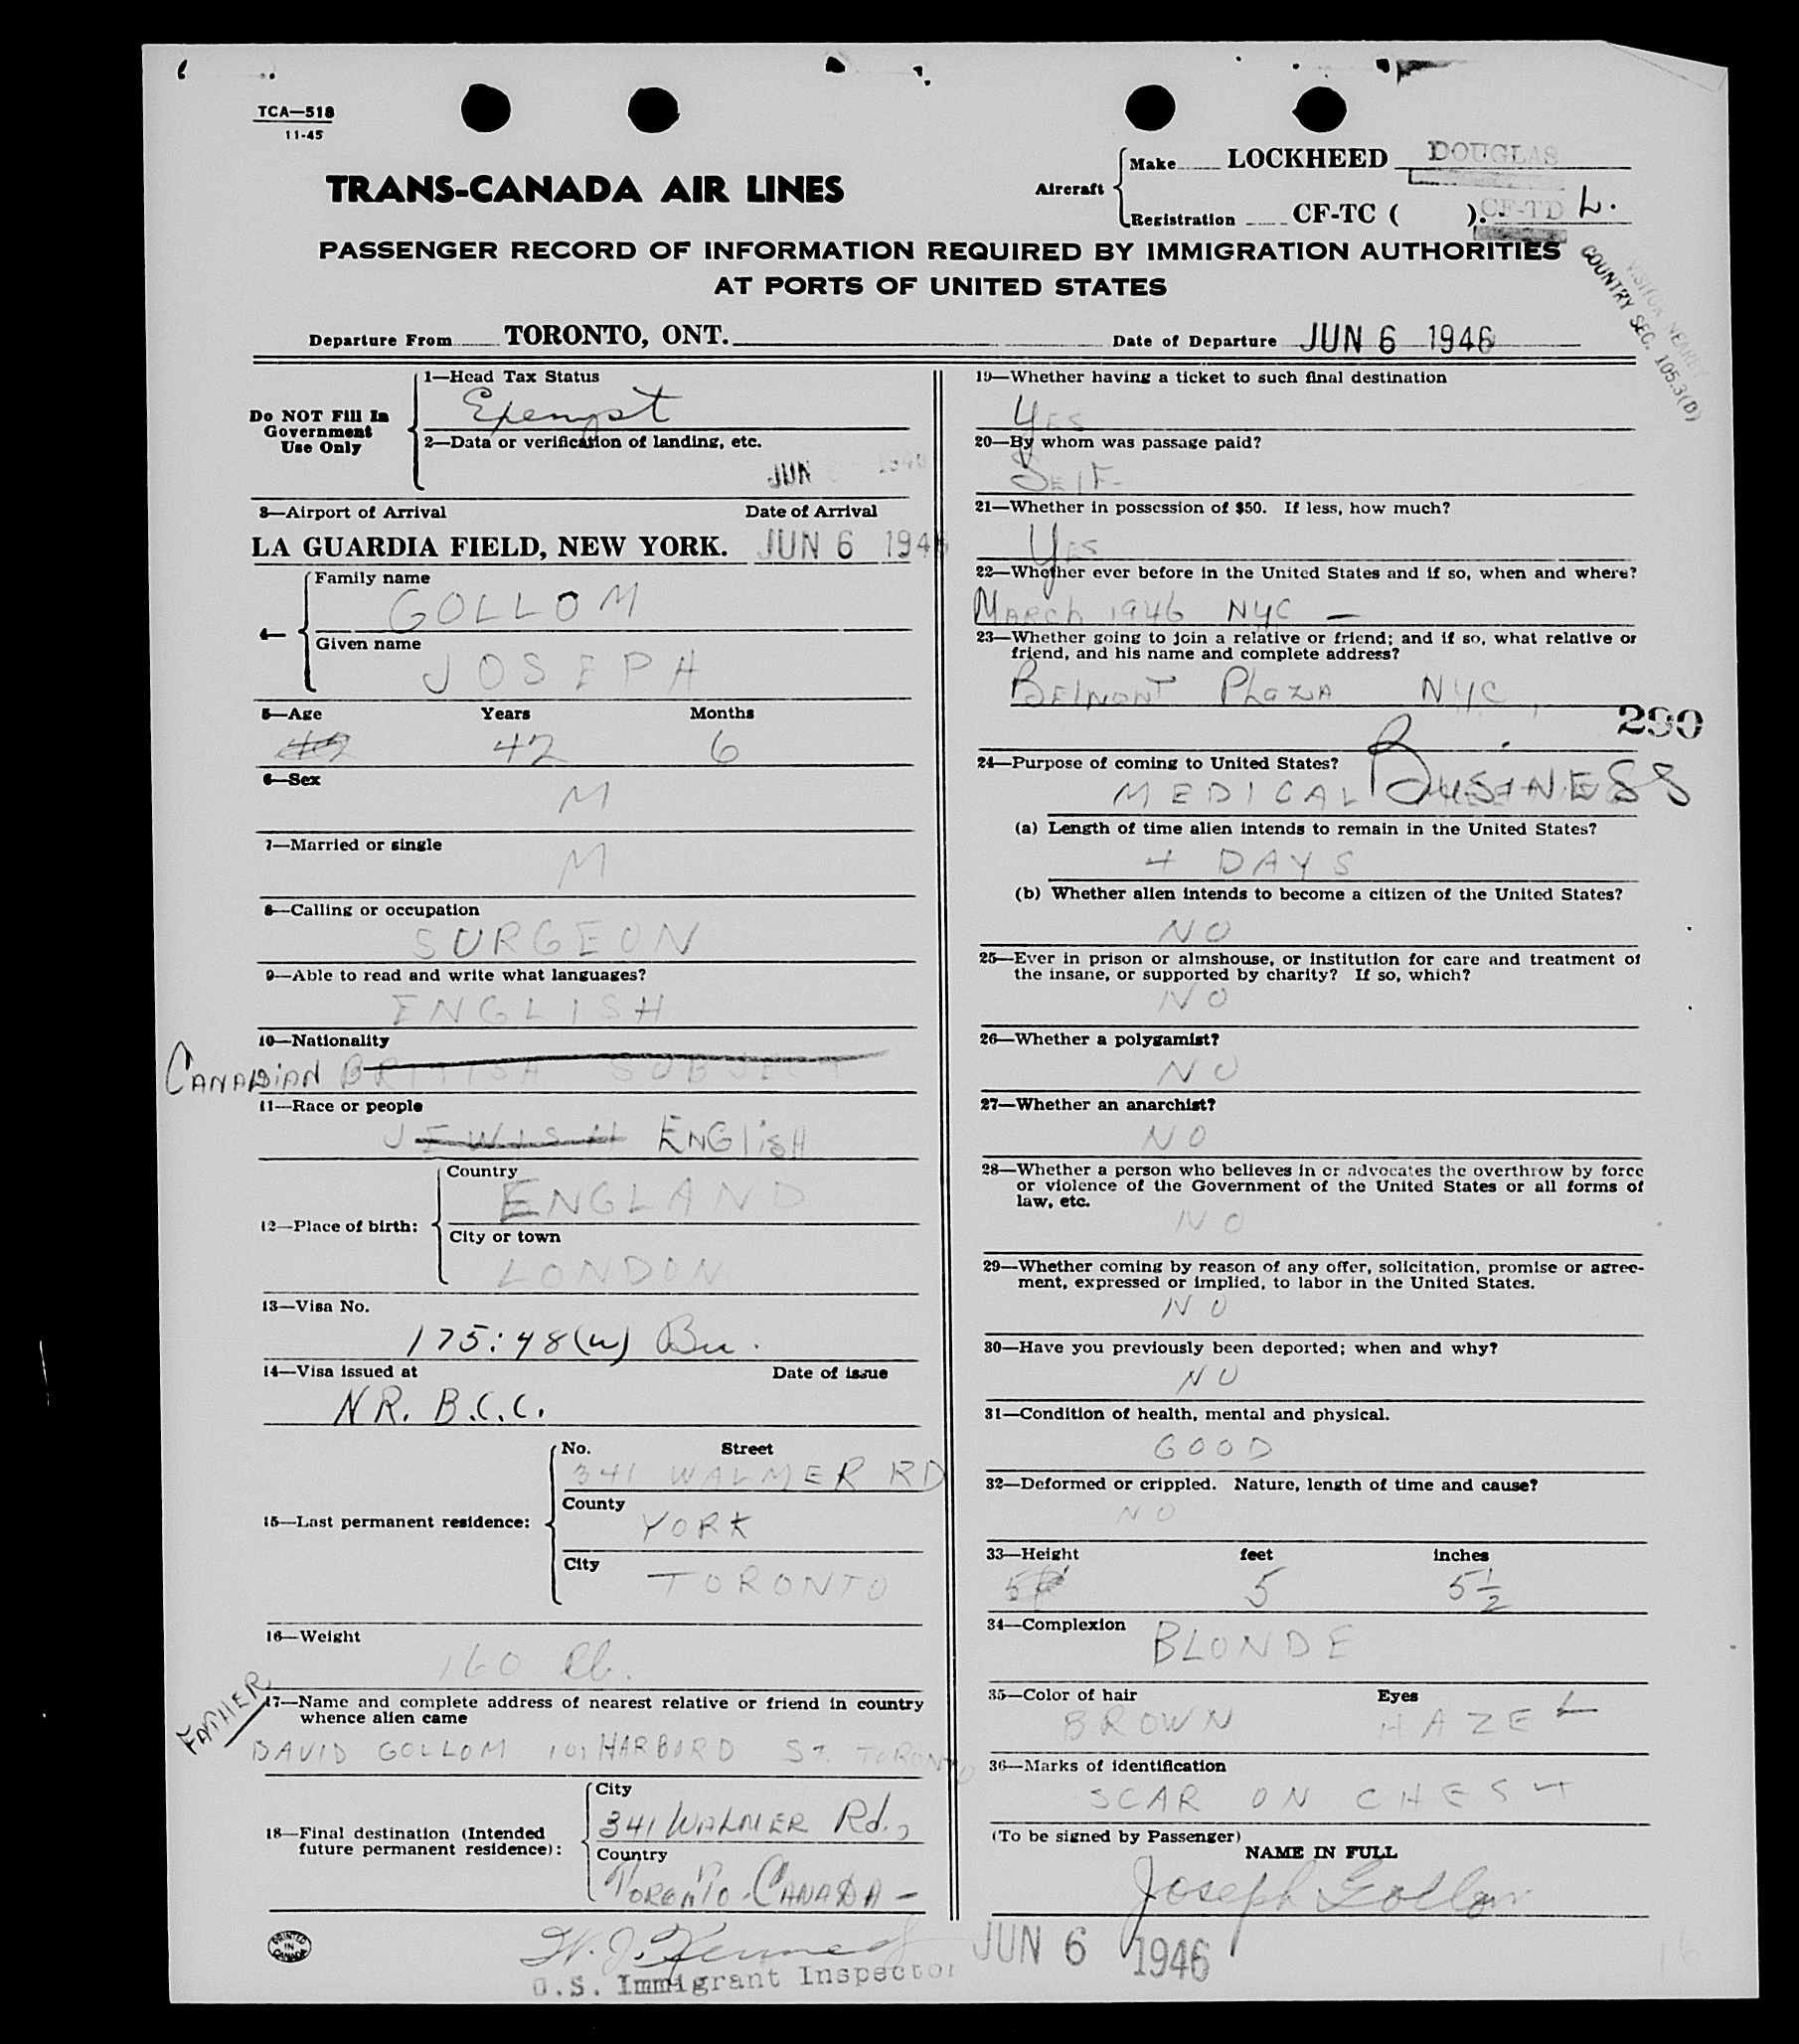 TCA—518
11-45
TRANS-CANADA AIR LINES
Aircraft
Make LOCKHEED DOUGLAS
Registration CF-TC ( ). CF-TD L.
PASSENGER RECORD OF INFORMATION REQUIRED BY IMMIGRATION AUTHORITIES
AT PORTS OF UNITED STATES
COUNTRY SEC. 105.3(D)
Departure From TORONTO, ONT. Date of Departure JUN 6 1946
Do NOT Fill In
Government
Use Only
1—Head Tax Status
Exempt
2—Data or verification of landing, etc.
JUN
3—Airport of Arrival Date of Arrival
LA GUARDIA FIELD, NEW YORK. JUN 6 1946
4—
Family name
GOLLOM
Given name
JOSEPH
5—Age Years Months
42 6
6—Sex
M
7—Married or single
M
8—Calling or occupation
SURGEON
9—Able to read and write what languages?
ENGLISH
10—Nationality
CANADIAN BRITISH SUBJECT
11—Race or people
JEWISH ENGLISH
12—Place of birth:
Country
ENGLAND
City or town
LONDON
13—Visa No.
175:48(w) Bu.
14—Visa issued at Date of issue
NR. B.C.C.
15—Last permanent residence:
No. Street
341 WALMER RD
County
YORK
City
TORONTO
16—Weight
160 lb.
FATHER
17—Name and complete address of nearest relative or friend in country
whence alien came
DAVID GOLLOM 101 HARBORD ST. TORONTO
18—Final destination (Intended
future permanent residence):
City
341 WALMER Rd.,
Country
TORONTO-CANADA-
PRINTED
IN
CANADA
19—Whether having a ticket to such final destination
YES
20—By whom was passage paid?
SELF-
21—Whether in possession of $50. If less, how much?
YES
22—Whether ever before in the United States and if so, when and where?
MARCH 1946 NYC —
23—Whether going to join a relative or friend; and if so, what relative or
friend, and his name and complete address?
BELMONT PLAZA NYC,
290
24—Purpose of coming to United States?
MEDICAL BUSINESS
(a) Length of time alien intends to remain in the United States?
4 DAYS
(b) Whether alien intends to become a citizen of the United States?
NO
25—Ever in prison or almshouse, or institution for care and treatment of
the insane, or supported by charity? If so, which?
NO
26—Whether a polygamist?
NO
27—Whether an anarchist?
NO
28—Whether a person who believes in or advocates the overthrow by force
or violence of the Government of the United States or all forms of
law, etc.
NO
29—Whether coming by reason of any offer, solicitation, promise or agree-
ment, expressed or implied, to labor in the United States.
NO
30—Have you previously been deported; when and why?
NO
31—Condition of health, mental and physical.
GOOD
32—Deformed or crippled. Nature, length of time and cause?
NO
33—Height feet inches
5 5½
34—Complexion
BLONDE
35—Color of hair Eyes
BROWN HAZEL
36—Marks of identification
SCAR ON CHEST
(To be signed by Passenger)
NAME IN FULL
Joseph Gollom
W. J. Kennedy
U.S. Immigrant Inspector
JUN 6 1946